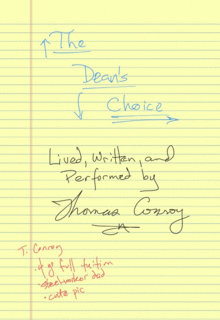 The
Dean's
Choice
Lived, Written, and
Performed by
Thomas Conroy
T. Conroy
full tuition
• steelworker dad
• cute pic